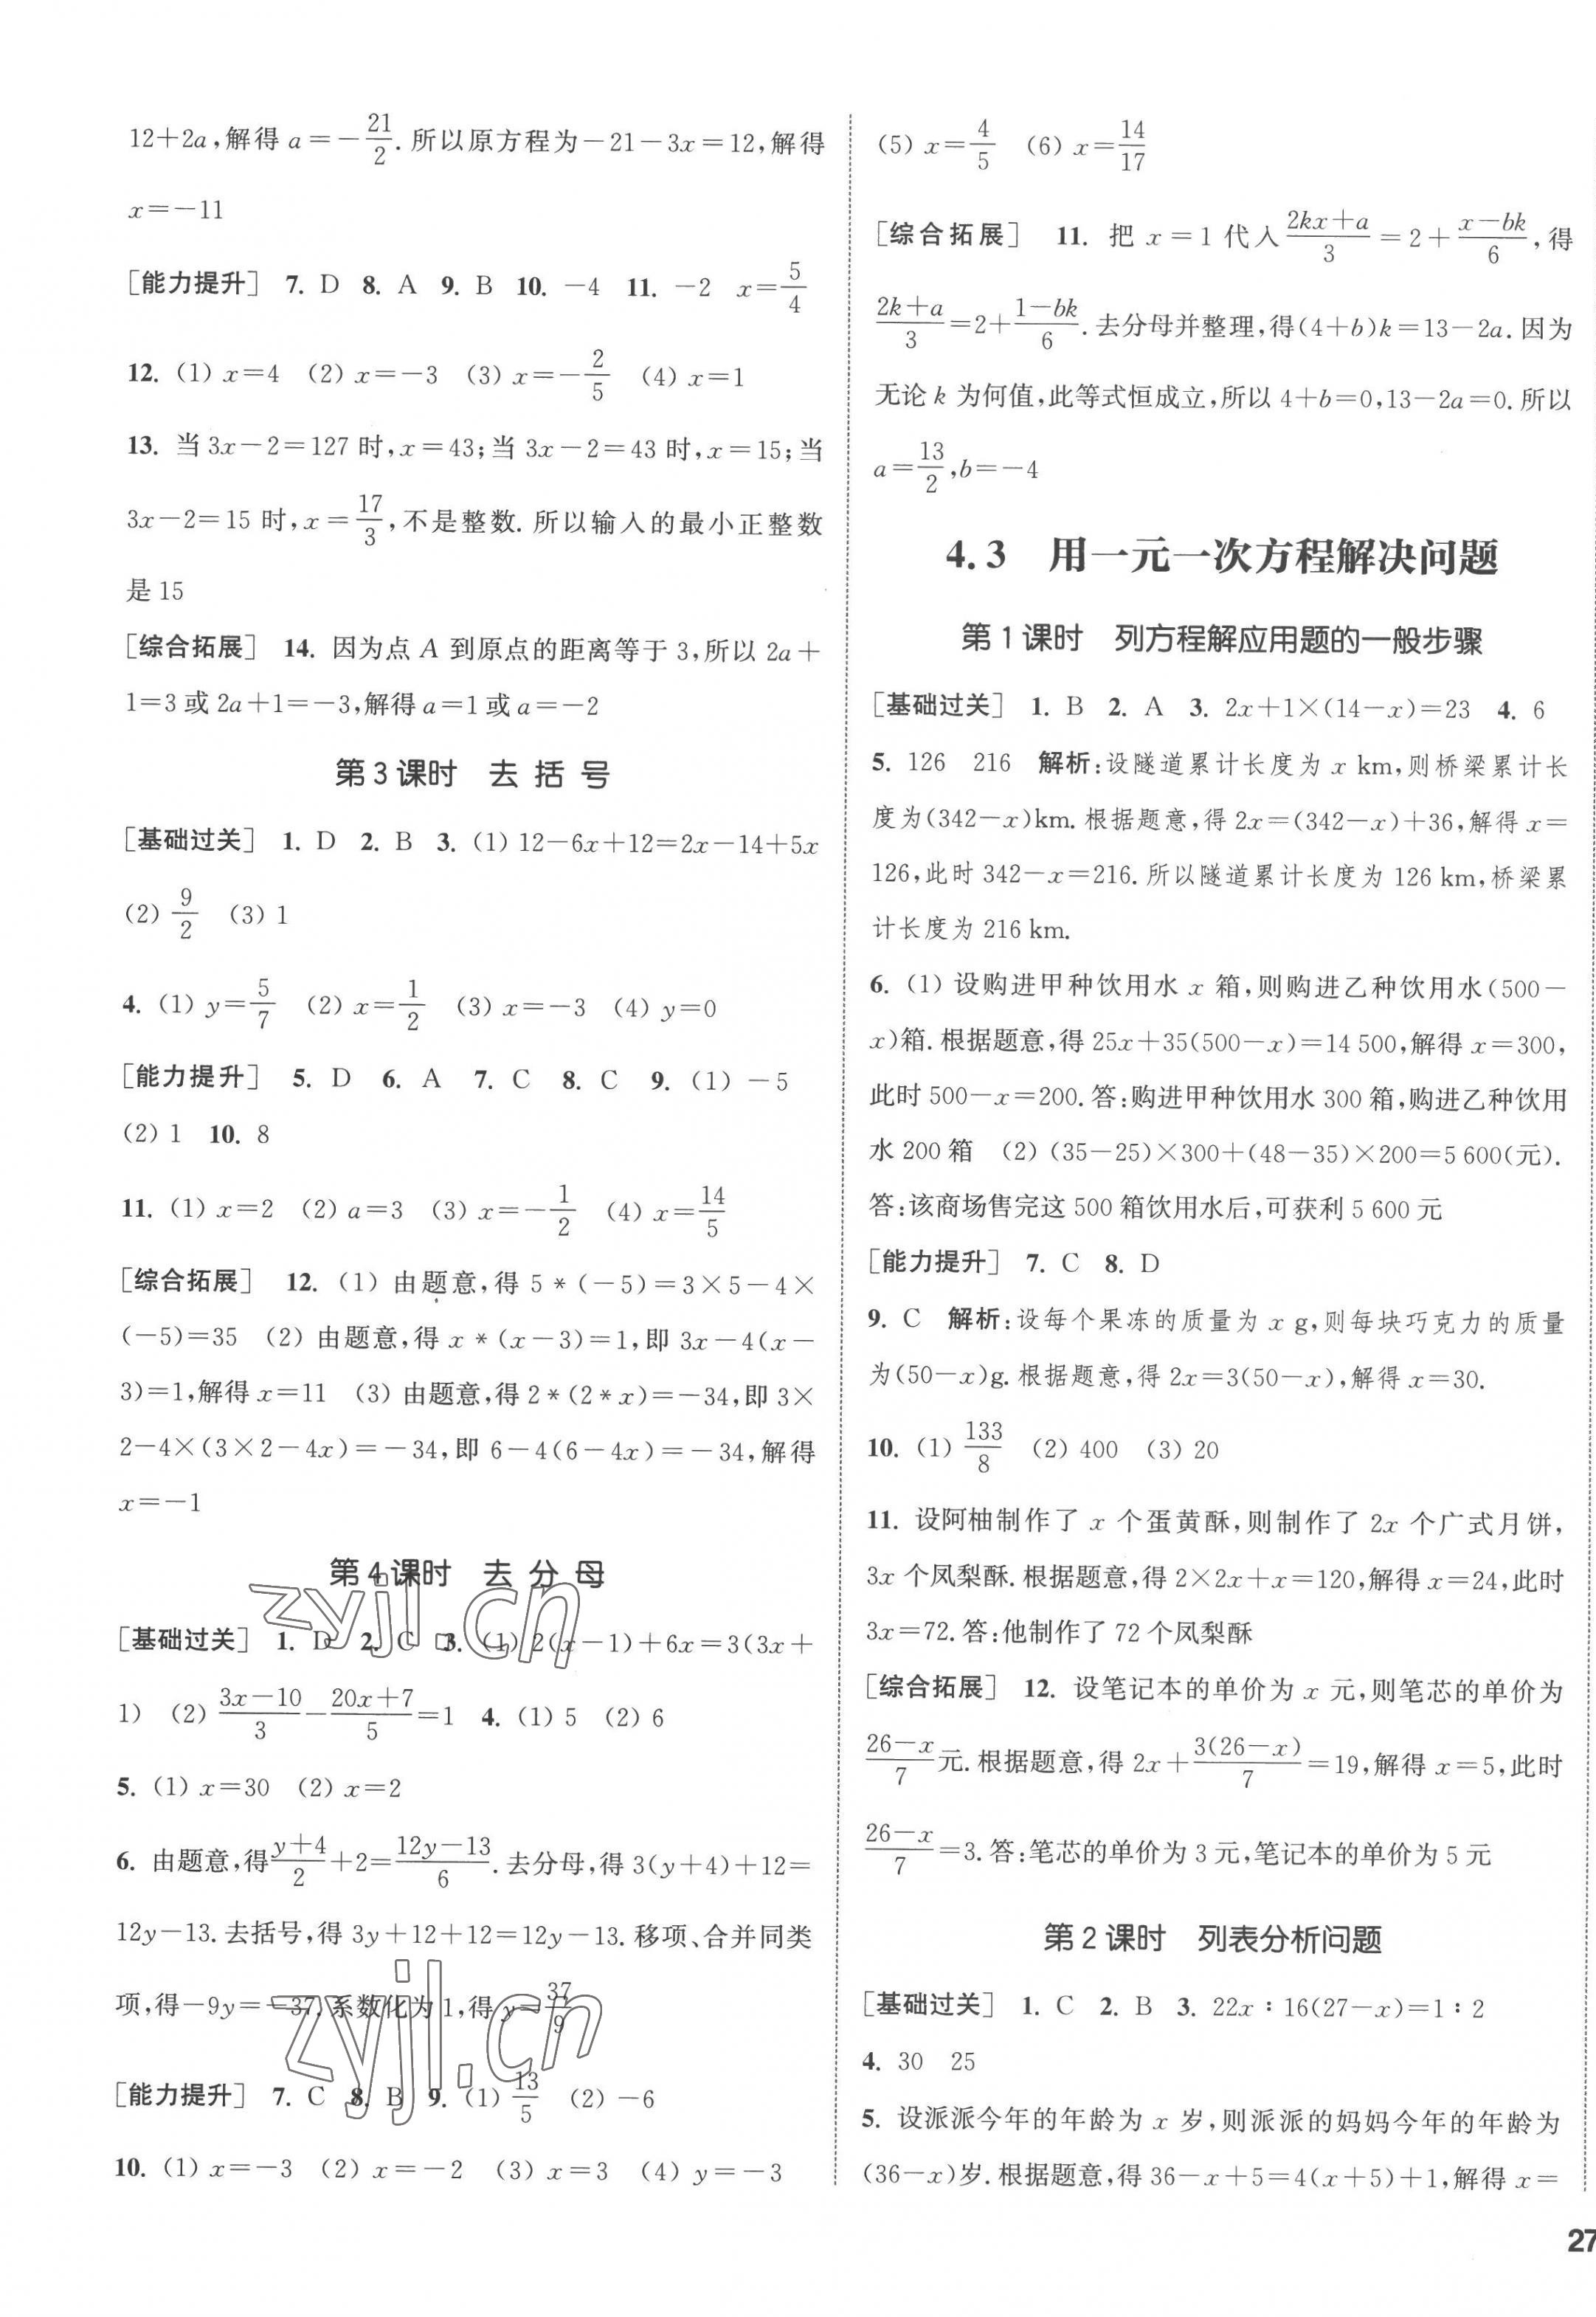 12+2a,解得 a=-21/2.所以原方程为-21-3x=12,解得
x=-11
[能力提升] 7. D 8. A 9. B 10. -4 11. -2 x=5/4
12. (1) x=4 (2) x=-3 (3) x=-2/5 (4) x=1
13. 当 3x-2=127 时,x=43;当 3x-2=43 时,x=15;当
3x-2=15 时,x=17/3,不是整数.所以输入的最小正整数
是 15
[综合拓展] 14. 因为点 A 到原点的距离等于 3,所以 2a+
1=3 或 2a+1=-3,解得 a=1 或 a=-2
第 3 课时 去 括 号
[基础过关] 1. D 2. B 3. (1) 12-6x+12=2x-14+5x
(2) 9/2 (3) 1
4. (1) y=5/7 (2) x=1/2 (3) x=-3 (4) y=0
[能力提升] 5. D 6. A 7. C 8. C 9. (1) -5
(2) 1 10. 8
11. (1) x=2 (2) a=3 (3) x=-1/2 (4) x=14/5
[综合拓展] 12. (1) 由题意,得 5*(-5)=3×5-4×
(-5)=35 (2) 由题意,得 x*(x-3)=1,即 3x-4(x-
3)=1,解得 x=11 (3) 由题意,得 2*(2*x)=-34,即 3×
2-4×(3×2-4x)=-34,即 6-4(6-4x)=-34,解得
x=-1
第 4 课时 去 分 母
[基础过关] 1. D 2. C 3. (1) 2(x-1)+6x=3(3x+
1) (2) (3x-10)/3-(20x+7)/5=1 4. (1) 5 (2) 6
5. (1) x=30 (2) x=2
6. 由题意,得(y+4)/2+2=(12y-13)/6.去分母,得 3(y+4)+12=
12y-13.去括号,得 3y+12+12=12y-13.移项、合并同类
项,得-9y=-37.系数化为 1,得 y=37/9
[能力提升] 7. C 8. B 9. (1) 13/5 (2) -6
10. (1) x=-3 (2) x=-2 (3) x=3 (4) y=-3
(5) x=4/5 (6) x=14/17
[综合拓展] 11. 把 x=1 代入(2kx+a)/3=2+(x-bk)/6,得
(2k+a)/3=2+(1-bk)/6.去分母并整理,得(4+b)k=13-2a.因为
无论 k 为何值,此等式恒成立,所以 4+b=0,13-2a=0.所以
a=13/2,b=-4
4.3 用一元一次方程解决问题
第 1 课时 列方程解应用题的一般步骤
[基础过关] 1. B 2. A 3. 2x+1×(14-x)=23 4. 6
5. 126 216 解析:设隧道累计长度为 x km,则桥梁累计长
度为(342-x)km.根据题意,得 2x=(342-x)+36,解得 x=
126,此时 342-x=216.所以隧道累计长度为 126 km,桥梁累
计长度为 216 km.
6. (1) 设购进甲种饮用水 x 箱,则购进乙种饮用水(500-
x)箱.根据题意,得 25x+35(500-x)=14 500,解得 x=300,
此时 500-x=200.答:购进甲种饮用水 300 箱,购进乙种饮用
水 200 箱 (2) (35-25)×300+(48-35)×200=5 600(元).
答:该商场售完这 500 箱饮用水后,可获利 5 600 元
[能力提升] 7. C 8. D
9. C 解析:设每个果冻的质量为 x g,则每块巧克力的质量
为(50-x)g.根据题意,得 2x=3(50-x),解得 x=30.
10. (1) 133/8 (2) 400 (3) 20
11. 设阿柚制作了 x 个蛋黄酥,则制作了 2x 个广式月饼,
3x 个凤梨酥.根据题意,得 2×2x+x=120,解得 x=24,此时
3x=72.答:他制作了 72 个凤梨酥
[综合拓展] 12. 设笔记本的单价为 x 元,则笔芯的单价为
(26-x)/7元.根据题意,得 2x+3(26-x)/7=19,解得 x=5,此时
(26-x)/7=3.答:笔芯的单价为 3 元,笔记本的单价为 5 元
第 2 课时 列表分析问题
[基础过关] 1. C 2. B 3. 22x∶16(27-x)=1∶2
4. 30 25
5. 设派派今年的年龄为 x 岁,则派派的妈妈今年的年龄为
(36-x)岁.根据题意,得 36-x+5=4(x+5)+1,解得 x=
27
zyjl.cn
zyjl.cn